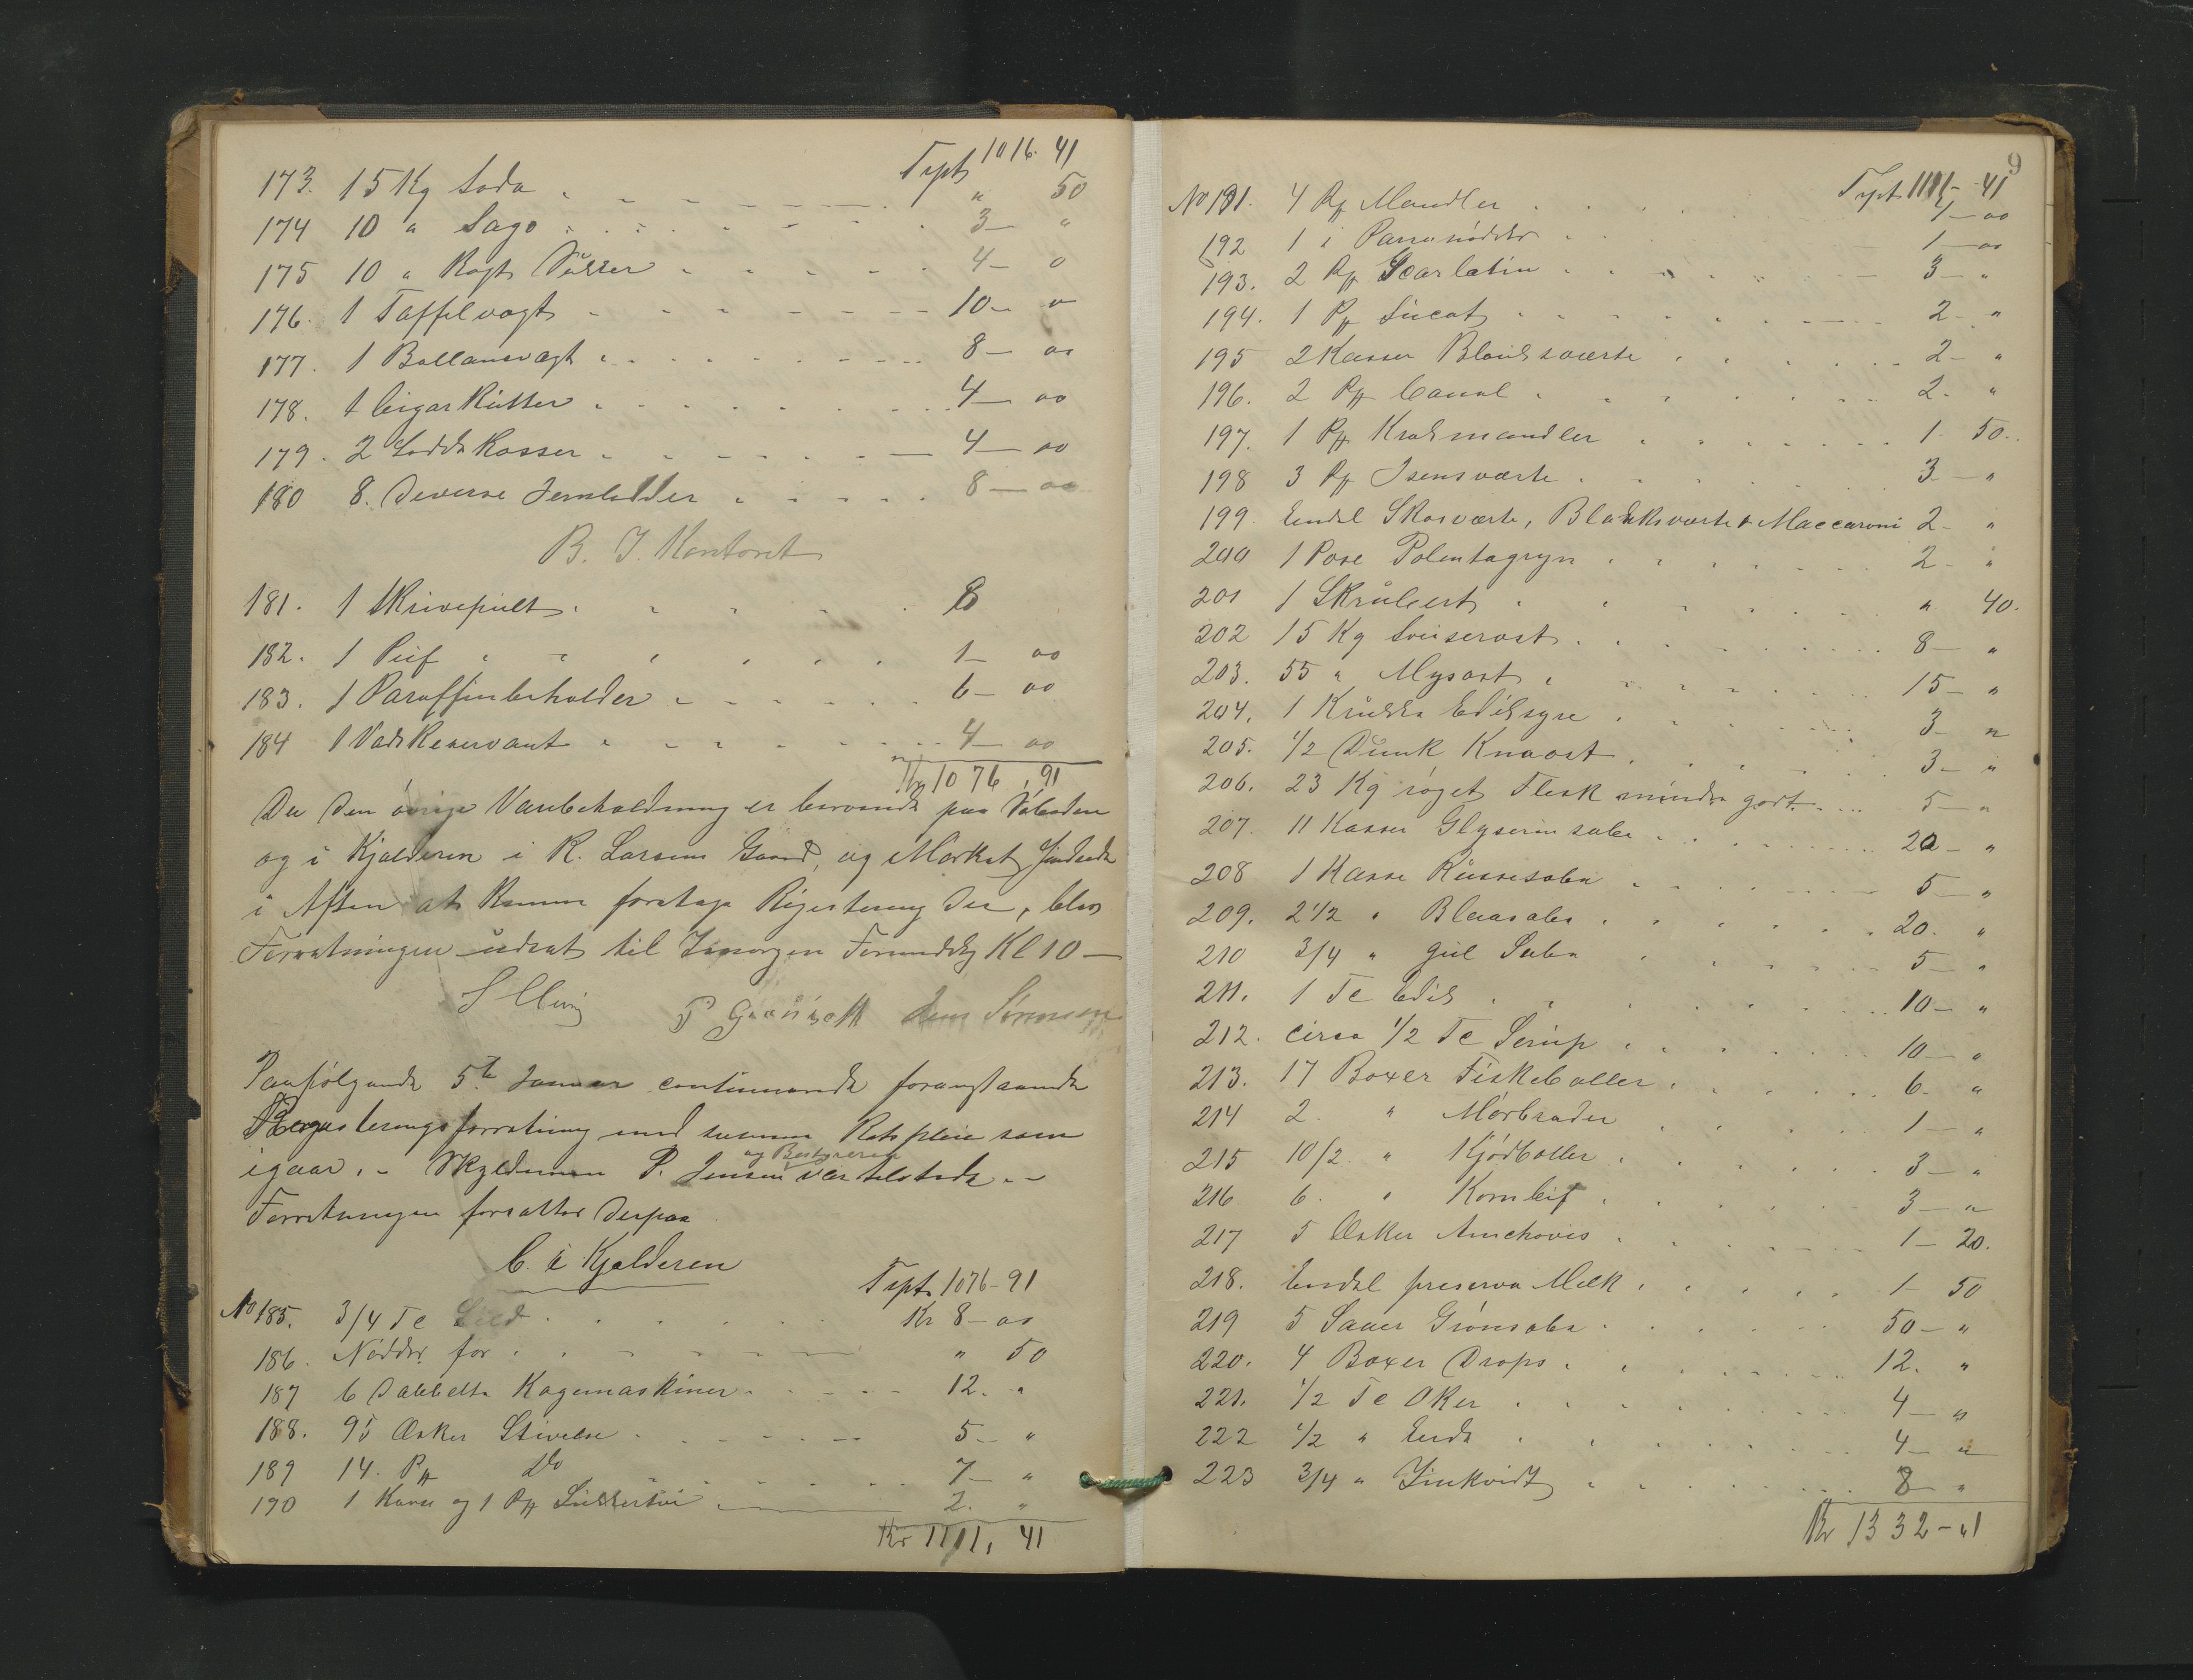 Tspt 1016. 41
173. 15 Kg Soda " 50
174 10 " Sago 3 — "
175 10 " Kogt Sukker 4 — 0
176. 1 Taffelvægt 10 — 0
177. 1 Ballansevægt 8 — 00
178. 1 Cigar Kutter 4 — 00
179. 2 Kasser 4 — 00
180 8. Deverse 8 — 00
B. I. Kontoret
181. 1 Skrivepult 8
182. 1 Puf 1 — 00
183. 1 Paraffinbeholder 6 — 00
184 1 VadsKeservant 4 — 00
Kr 1076, 91
Da den øvrige Varebeholdning er beroende paa
og i Kjælderen i K. Larsens Gaard, og Mørket hindrede
i Aften at kunne foretage Registering der, blev
Forretningen udsat til Imorgen Formiddag Kl 10 —
Jens Sørensen
Paafølgende 5te Januar continuerede foranstaaende
Registeringsforretning med samme Retspleie som
igaar. – P. Jensen og Bestyreren var tilstede. –
Forretningen forsattes derpaa
C. i Kjælderen
Tspt 1076 – 91
No 185. 3/4 Te Sild Kr 8 – 00
186. Nødder for " 50
187 6 Dobbelte Kogemaskiner 12. "
188. 95 Æsker Stivelse 5 – "
189 14. Pk Do 7 – "
190 1 Kasse og 1 Pk 2. "
Kr 1111, 41
9
Tspt 1111 – 41
No 191. 4 Pk Mandler 4 — 00
192 1 i Paranødder 1 — 00
193. 2 Pk Scarlatin 3 — "
194. 1 Pk Sucat 2 – "
195 2 Kasser Blanksværte 2 – "
196. 2 Pk Canel 2. "
197. 1 Pk Krakmandler 1 50.
198 3 Pk Isensværte 3 — "
199. Endel Skosværte, Blanksværte & Maccaroni 2 – "
200 1 Pose Polentagryn 2 – "
201 1 " 40.
202 15 Kg Sveiserost 8 — "
203. 55 " Mysost 15 – "
204. 1 Krukke Ediksyre 3 – "
205. 1/2 Dunk Knaost 3 – "
206. 23 Kg røget Flesk mindre godt 5 — "
207. 11 Kasser Glyserinsæbe 20 – "
208 1 Kasse Russesæbe 5 – "
209. 2 1/2 " Blaasæbe 20. "
210 3/4 " gul Sæbe 5 – "
211. 1 Te Edik 10 – "
212. circa 1/2 Te Serup 10 – "
213. 17 Boxer Fiskeboller 6. "
214 2. " Mørbrader 1 — "
215 10/2 " Kjødboller 3 – "
216 6. " Kornbif 3 – "
217 5 Æsker Anchovis 1 – 20.
218. Endel preserva Melk 1 – 50
219 5 Sauer Grønsæbe 50 – "
220. 4 Boxer Drops 12. "
221. 1/2 Te Oker 4 — "
222 1/2 " Enda 4 – "
223 3/4 " Zinkvidt 8 – "
Kr 1332 – 41